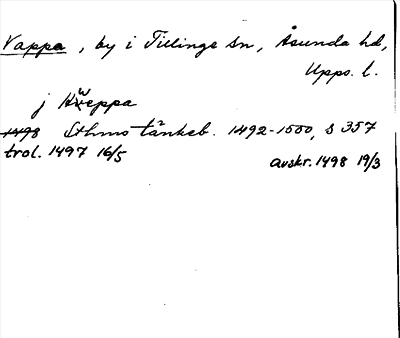 Vappa, by i Tillinge sn, Åsunda hd,
Upps. l.
j Hweppa
1498 Sthms tänkeb. 1492-1500, s 357
trol. 1497 16/5 avskr. 1498 19/3